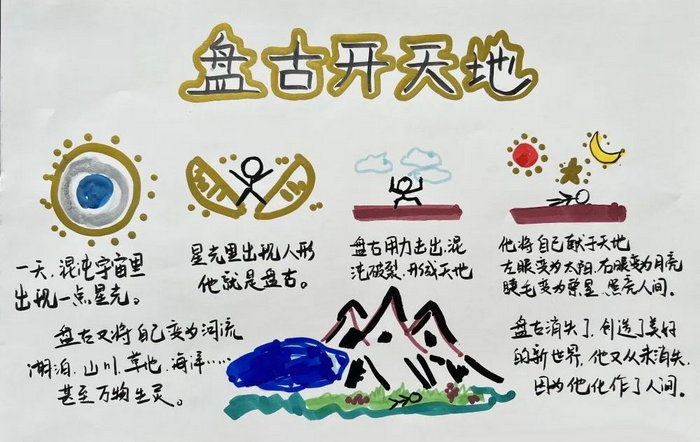 盘古开天地
一天,混沌宇宙里
出现一点星壳。
星壳里出现人形
他就是盘古。
盘古用力击出,混
沌破裂,形成天地
他将自己献于天地
左眼变为太阳,右眼变为月亮
睫毛变为繁星,照亮人间。
盘古又将自己变为河流
湖泊,山川,草地,海洋……
甚至万物生灵。
盘古消失了,创造了美好
的新世界,他又从未消失,
因为他化作了人间。